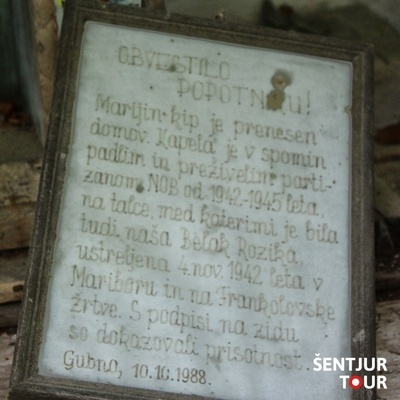 OBVESTILO
POPOTNIKU!
Marijin kip je prenesen
domov. Kapela je v spomin
padlim in preživelim parti-
zanom NOB od 1942-1945 leta,
na talce, med katerimi je bila
tudi naša Belak Rozika,
ustreljena 4. nov. 1942 leta v
Mariboru in na Frankolovske
žrtve. S podpisi na zidu
so dokazovali prisotnost.
Gubno, 10.10.1988.
ŠENTJUR
TOUR